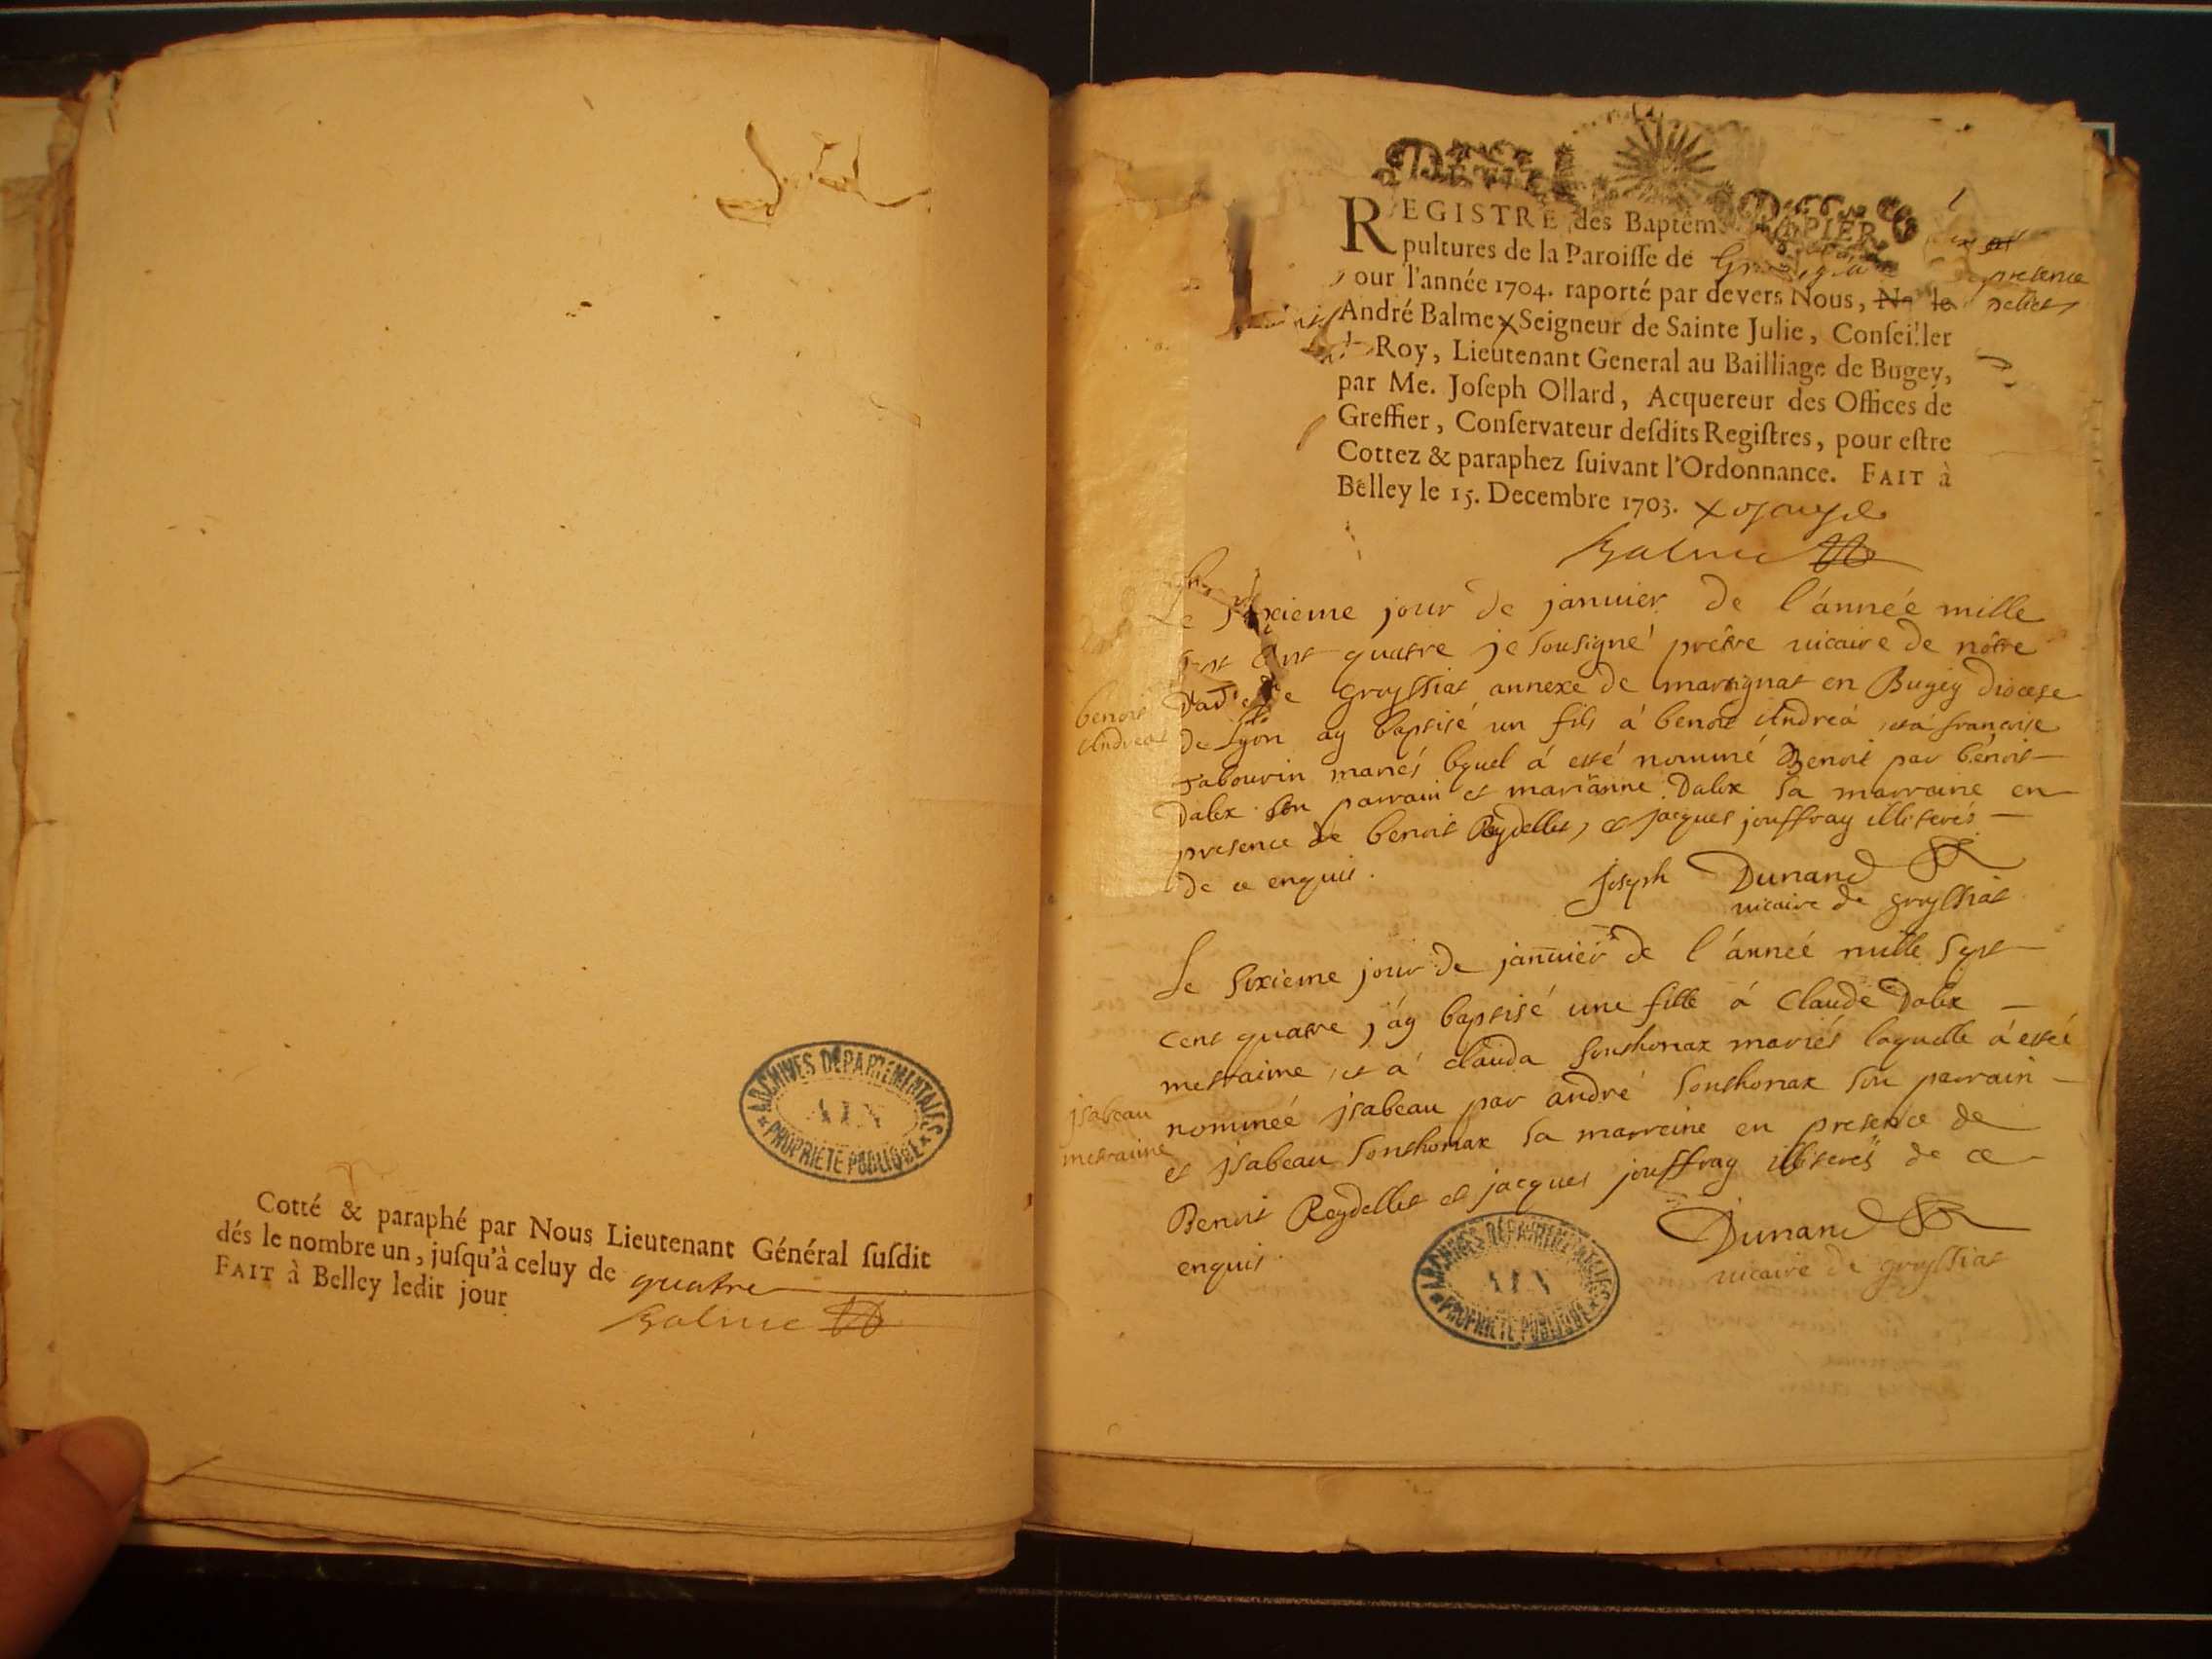 Cotté & paraphé par Nous Lieutenant Général susdit
dés le nombre un, jusqu'à celuy de quatre
FAIT à Belley ledit jour
Balme
ARCHIVES DÉPARTEMENTALES
AIN
PROPRIÉTÉ PUBLIQUE
PAPIER
REGISTRE des Baptem
pultures de la Paroisse de
our l'année 1704. raporté par devers Nous,
presence
André Balme Seigneur de Sainte Julie, Conseiller
Roy, Lieutenant General au Bailliage de Bugey,
par Me. Joseph Ollard, Acquereur des Offices de
Greffier, Conservateur desdits Registres, pour estre
Cottez & paraphez suivant l'Ordonnance. FAIT à
Belley le 15. Decembre 1703.
Balme
Le sixieme jour de januier de l'année mille
sept cent quatre je sousigné prétre uicaire de nótre
Dame de groyssiat annexe de martignat en Bugey diocese
de Lyon ay baptisé un fils á benoit Andreá et á francoise
tabourin mariés lequel á esté nommé Benoit par bénoit
Dalex son parrain et mariánne Dalex sa marraine en
presence de benoit Reydellet, et jacques jouffray illiterés
de ce enquis.
benoit
Andrea
Joseph Dunand
uicaire de groyssiat
Le sixieme jour de januiér de l'ánneé mille sept
cent quatre j'áy baptisé une fille á Claude Dalex
mestraime, et á clauda sonthonax mariés laquelle á esteé
nommeé jsabeau par andré sonthonax son parrain
et jsabeau sonthonax sa marreine en presence de
Benoit Reydellet et jacques jouffray illiterés de ce
enquis
jsabeau
mestraime
Dunand
uicaire de groyssiat
ARCHIVES DÉPARTEMENTALES
AIN
PROPRIÉTÉ PUBLIQUE